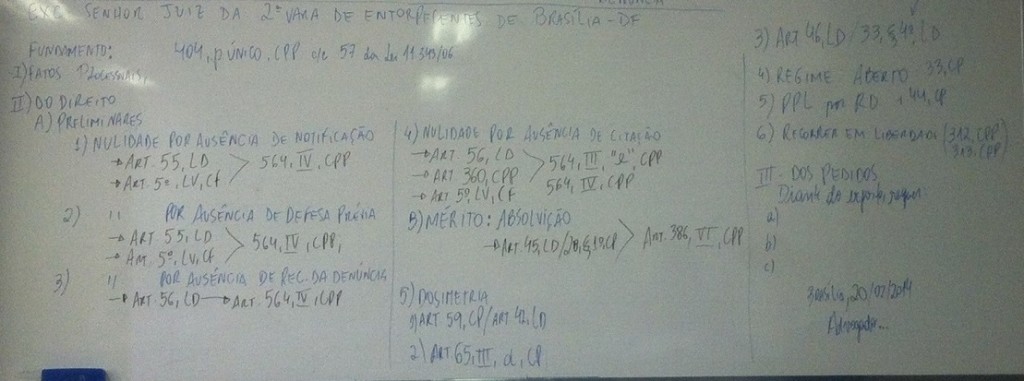 DENÚNCIA
EXC. SENHOR JUIZ DA 2ª VARA DE ENTORPECENTES DE BRASÍLIA-DF
FUNDAMENTO: 404, p. ÚNICO, CPP c/c 57 da Lei 11.343/06
I) FATOS PROCESSUAIS,
II) DO DIREITO
A) PRELIMINARES
1) NULIDADE POR AUSÊNCIA DE NOTIFICAÇÃO
→ ART. 55, LD
→ ART. 5º, LV, CF
> 564, IV, CPP
2) " POR AUSÊNCIA DE DEFESA PRÉVIA
→ ART. 55, LD
→ ART. 5º, LV, CF
> 564, IV, CPP,
3) " POR AUSÊNCIA DE REC. DA DENÚNCIA
→ ART. 56, LD → ART. 564, IV, CPP
4) NULIDADE POR AUSÊNCIA DE CITAÇÃO
→ ART. 56, LD
→ ART. 360, CPP
→ ART. 5º, LV, CF
> 564, III, "e", CPP
564, IV, CPP
B) MÉRITO: ABSOLVIÇÃO
→ ART. 45, LD/28, §1º, CP > ART. 386, VI, CPP
5) DOSIMETRIA
1) ART. 59, CP/ART. 42, LD
2) ART. 65, III, d, CP
3) ART 46, LD/33, §4º, LD
4) REGIME ABERTO 33, CP
5) PPL por RD 44, CP
6) RECORRER EM LIBERDADE (312, CPP)
313, CPP)
III - DOS PEDIDOS
Diante do exposto, requer:
a)
b)
c)
Brasília, 20/02/2014
Advogado...